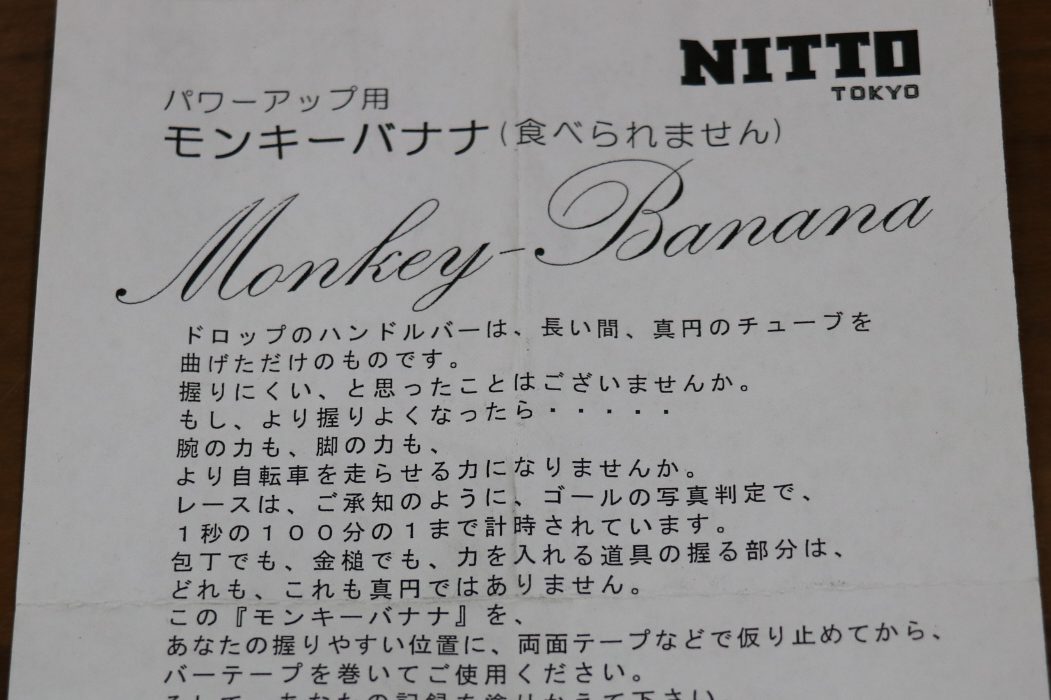 NITTO
TOKYO
パワーアップ用
モンキーバナナ(食べられません)
Monkey-Banana
ドロップのハンドルバーは、長い間、真円のチューブを
曲げただけのものです。
握りにくい、と思ったことはございませんか。
もし、より握りよくなったら・・・・・
腕の力も、脚の力も、
より自転車を走らせる力になりませんか。
レースは、ご承知のように、ゴールの写真判定で、
1秒の100分の1まで計時されています。
包丁でも、金槌でも、力を入れる道具の握る部分は、
どれも、これも真円ではありません。
この『モンキーバナナ』を、
あなたの握りやすい位置に、両面テープなどで仮り止めてから、
バーテープを巻いてご使用ください。
そして、あなたの記録を塗りかえて下さい。